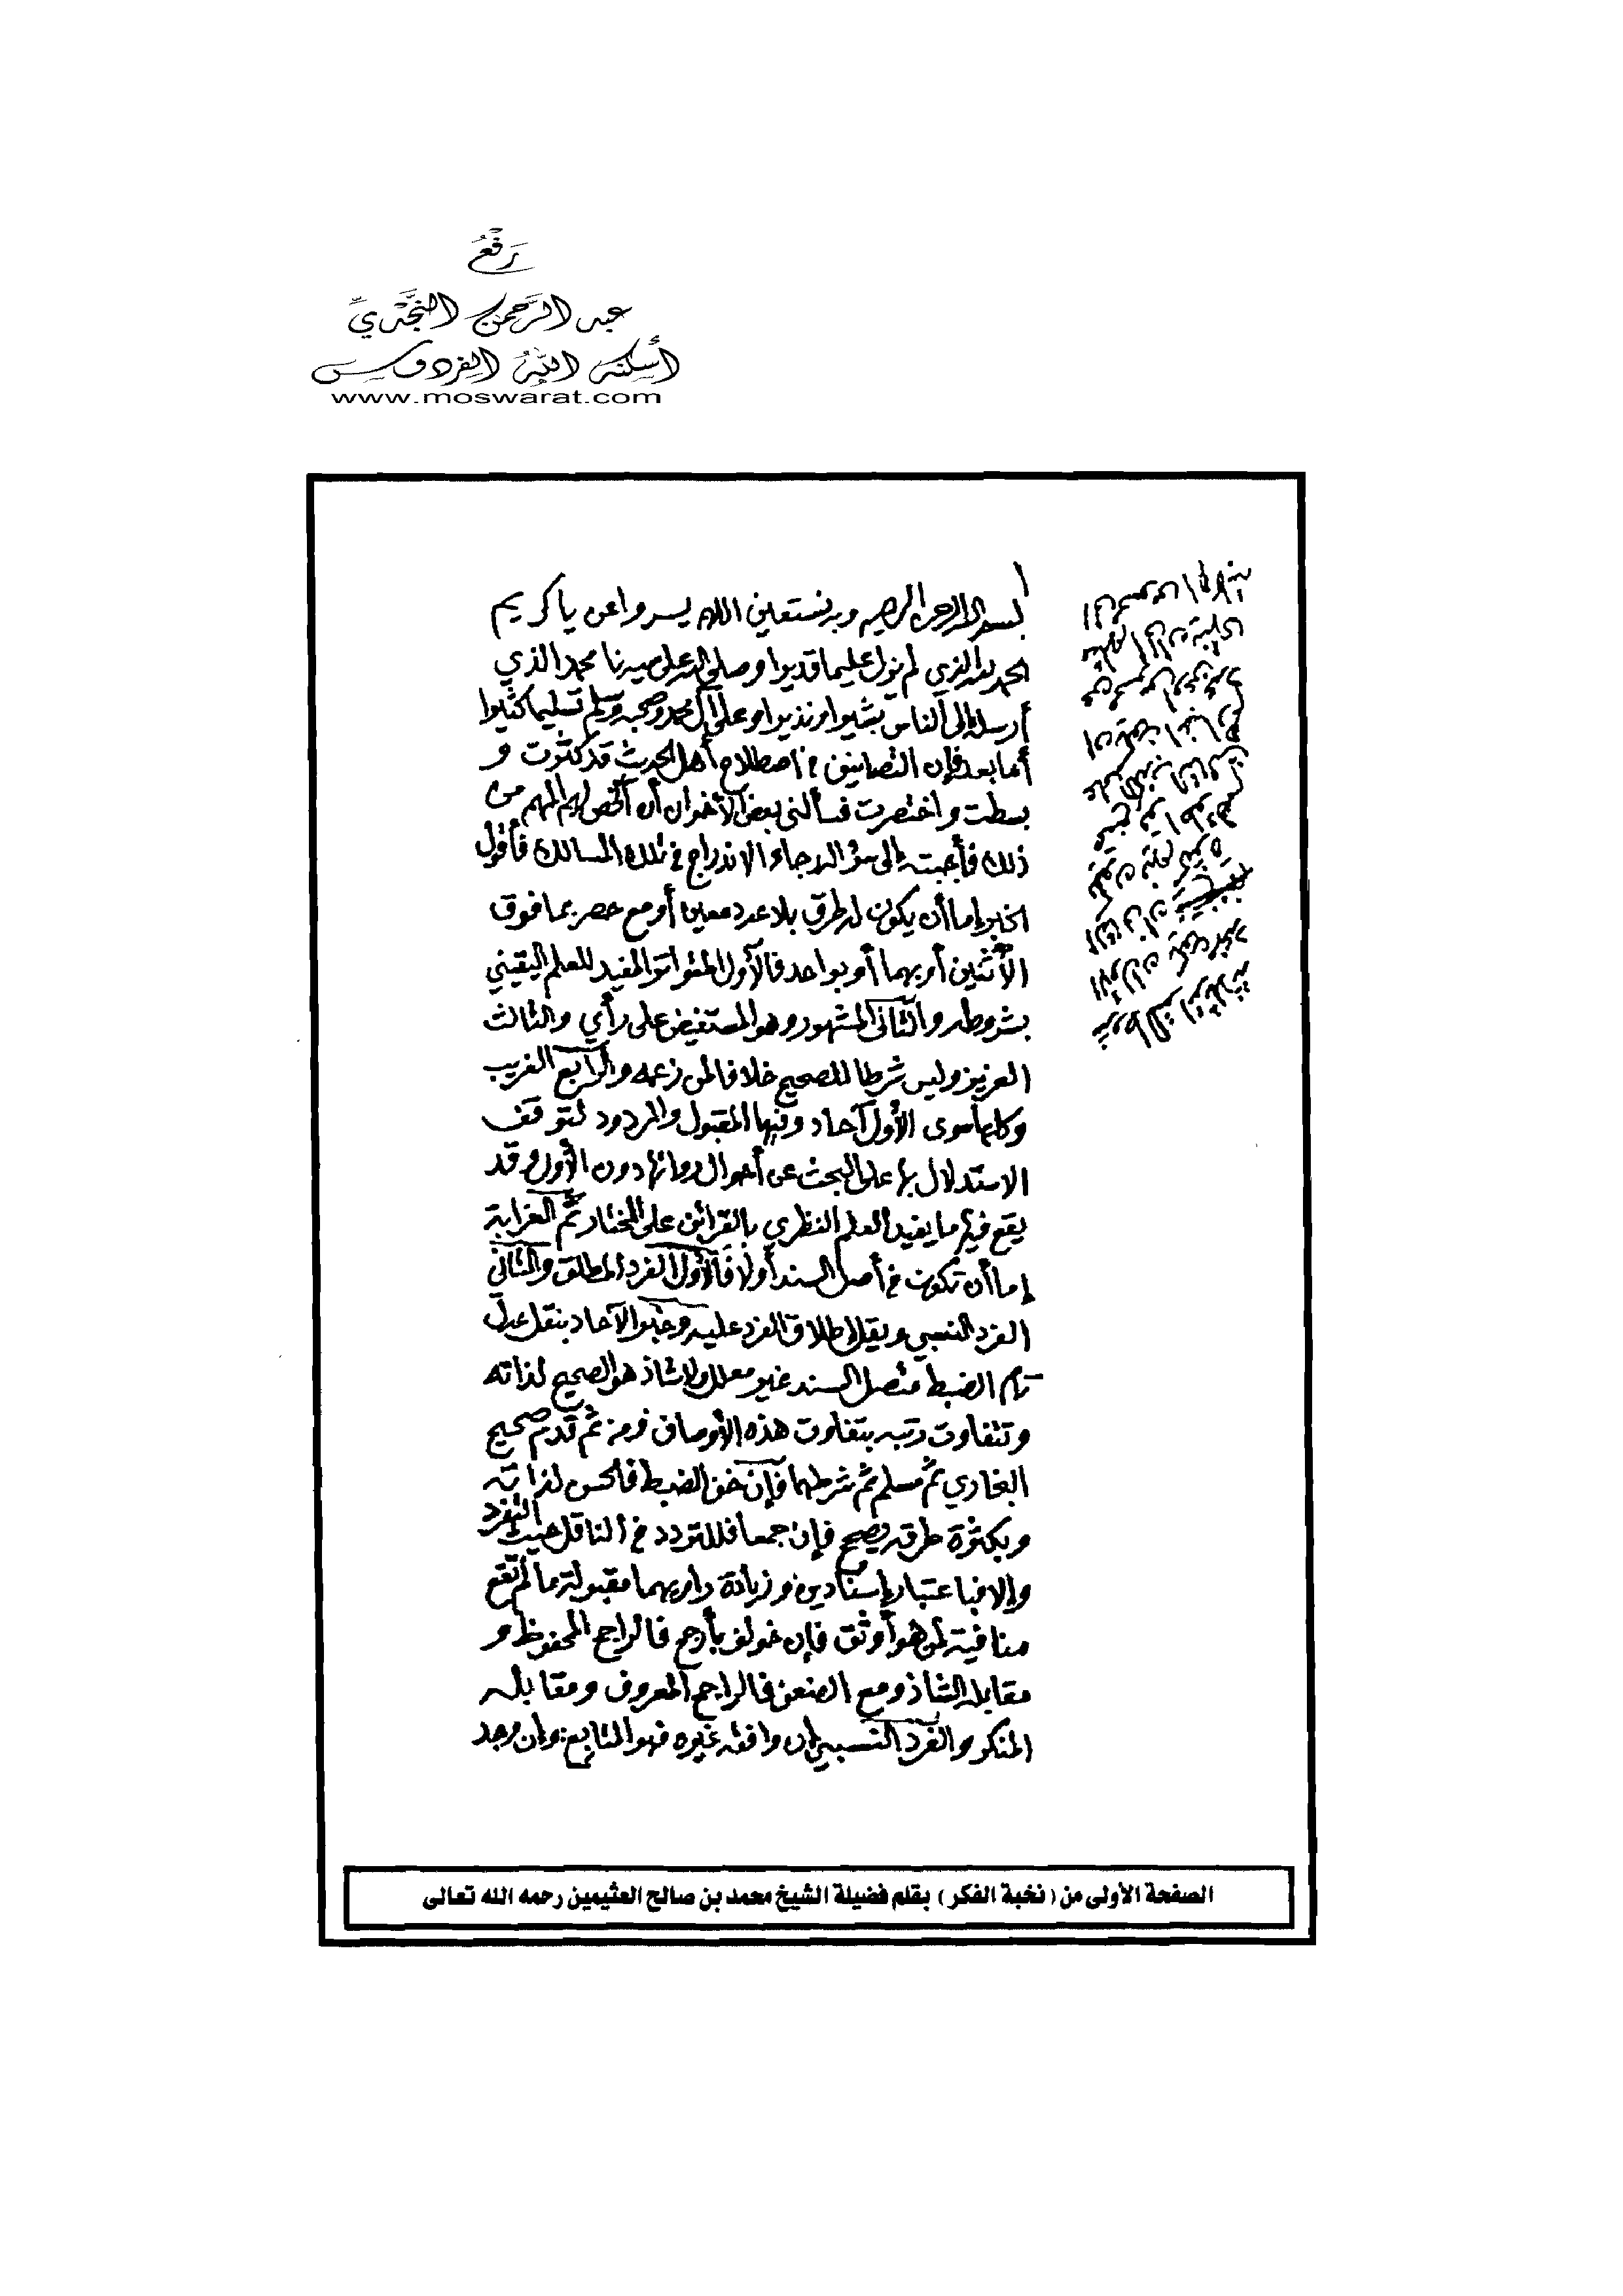 رَفْعُ
عبد الرَّحمن النَّجْديِّ
أسكنه اللهُ الفردوس
www.moswarat.com
بسم الله الرحمن الرحيم وبه نستعين اللهم يسر وأعن يا كريم
الحمد لله الذي لم يزل عليما قديرا وصلى الله على سيدنا محمد الذي
أرسله إلى الناس بشيرا ونذيرا وعلى آل محمد وصحبه وسلم تسليما كثيرا
أما بعد فإن التصانيف في اصطلاح أهل الحديث قد كثرت و
بسطت واختصرت فسألني بعض الأخوان أن ألخص لهم المهم من
ذلك فأجبته إلى سؤاله رجاء الاندراج في تلك المسالك فأقول
الخبر إما أن يكون له طرق بلا عدد معين أو مع حصر بما فوق
الأثنين أو بهما أو بواحد فالأول المتواتر المفيد للعلم اليقيني
بشروطه والثاني المشهور وهو المستفيض على رأي والثالث
العزيز وليس شرطا للصحيح خلافا لمن زعمه والرابع الغريب
وكلها سوى الأول آحاد وفيها المقبول والمردود لتوقف
الاستدلال بها على البحث عن أحوال رواتها دون الأول وقد
يقع فيها ما يفيد العلم النظري بالقرائن على المختار ثم الغرابة
إما أن تكون في أصل السند أولا فالأول الفرد المطلق والثاني
الفرد النسبي ويقل إطلاق الفرد عليه وخبر الآحاد بنقل عدل
تام الضبط متصل السند غير معلل ولا شاذ هو الصحيح لذاته
وتتفاوت رتبه بتفاوت هذه الأوصاف ومن ثم قدم صحيح
البخاري ثم مسلم ثم شرطهما فإن خف الضبط فالحسن لذاته
وبكثرة طرقه يصحح فإن جمعا فللتردد في الناقل حيث التفرد
وإلا فباعتبار إسنادين وزيادة راويهما مقبولة ما لم تقع
منافية لمن هو أوثق فإن خولف بأرجح فالراجح المحفوظ و
مقابله الشاذ ومع الضعف فالراجح المعروف ومقابله
المنكر والفرد النسبي إن وافقه غيره فهو المتابع وإن وجد
الصفحة الأولى من ( نخبة الفكر ) بقلم فضيلة الشيخ محمد بن صالح العثيمين رحمه الله تعالى